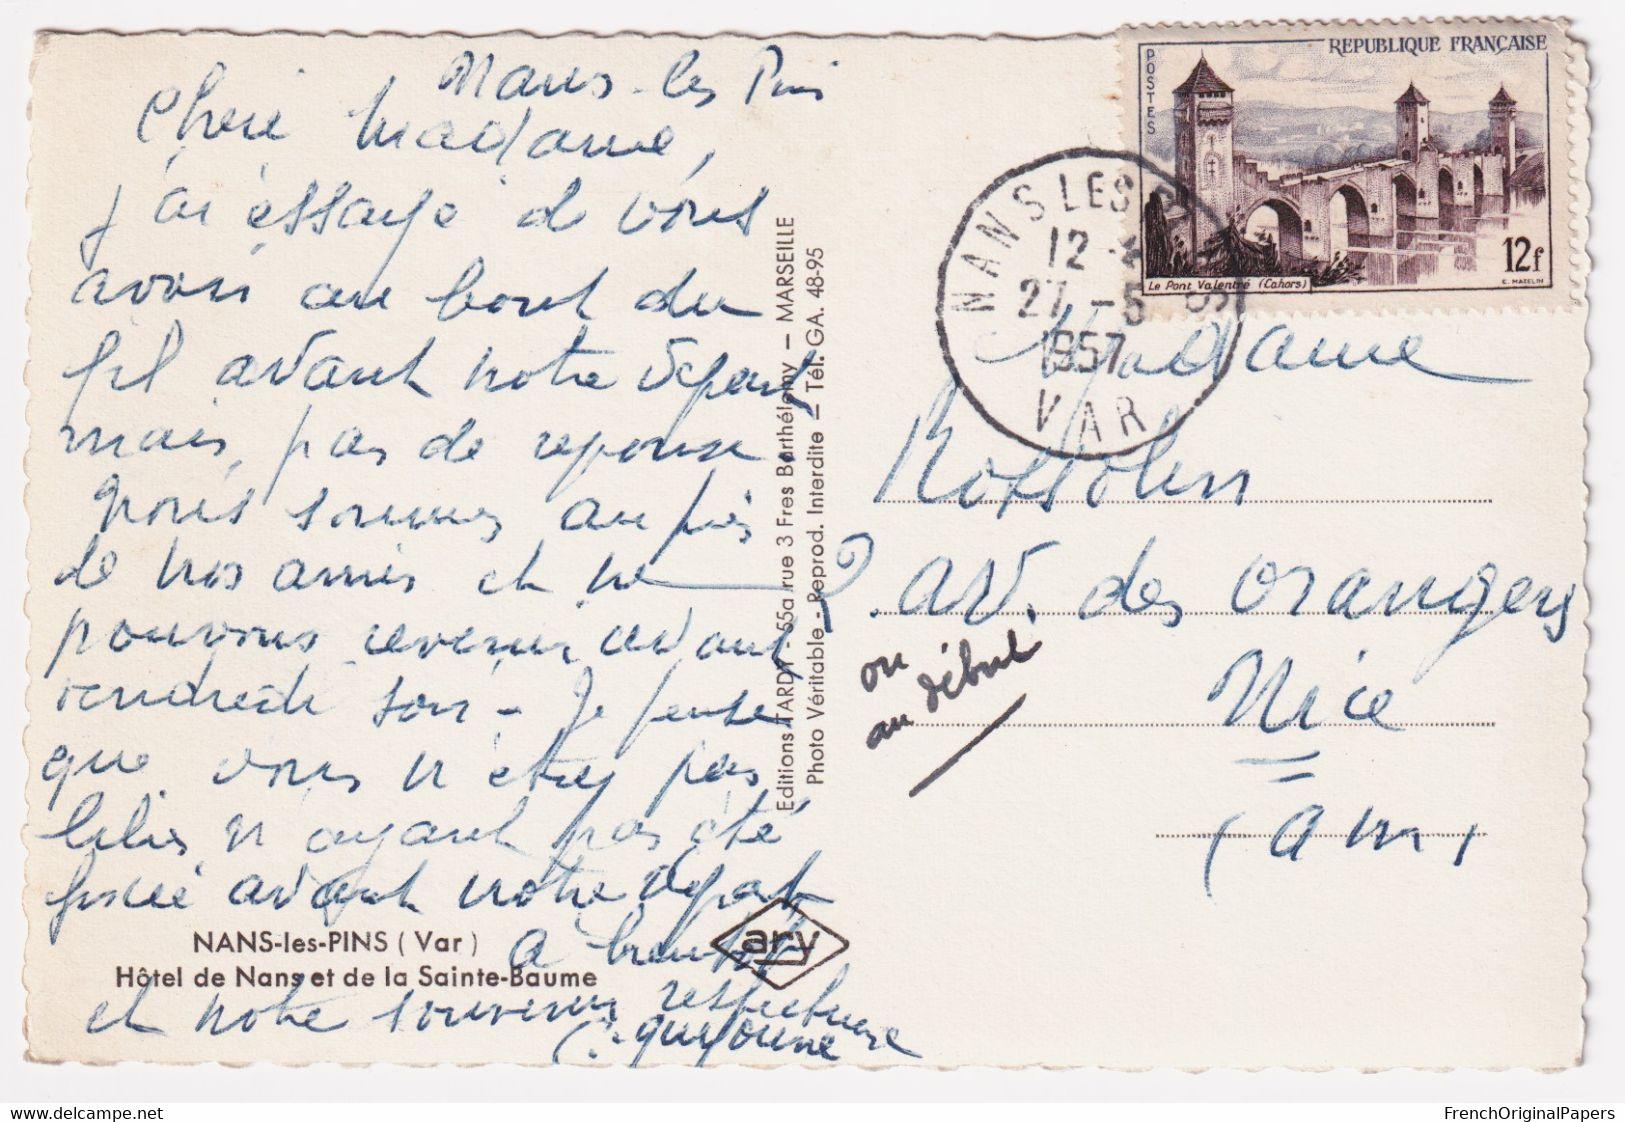 Nans-les Pins
Chère Madame,
j'ai essayé de vous
avoir au bout du
fil avant notre départ
mais, pas de reponse
Nous sommes au près
de nos amis et ne
pouvons revenir avant
vendredi soir - Je pense
que vous n'étiez pas
n'ayant pas été
avant notre départ
A bientôt
et notre souvenir respectueux
NANS-les-PINS ( Var )
Hôtel de Nans et de la Sainte-Baume
ary
Editions TARDY - 55a rue 3 Fres Barthélemy — MARSEILLE
Photo Véritable - Reprod. Interdite — Tél. GA. 48-95
REPUBLIQUE FRANÇAISE
POSTES
12f
Le Pont Valentré (Cahors)
C. MAZELIN
NANS LES P
12
27 - 5
1957
VAR
Madame
av. des orangers
ou
au début
Nice
(am)
FrenchOriginalPapers